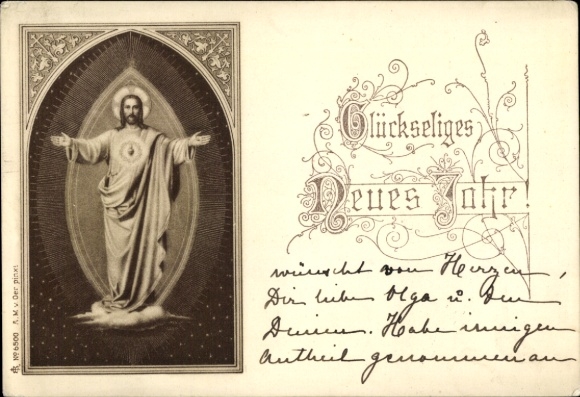 Glückseliges
Neues Jahr!
wünscht von Herzen,
Dir liebe Olga u. den
Deinen. Habe innigen
Antheil genommen an
No 6500 A. M. v. Oer pinx.